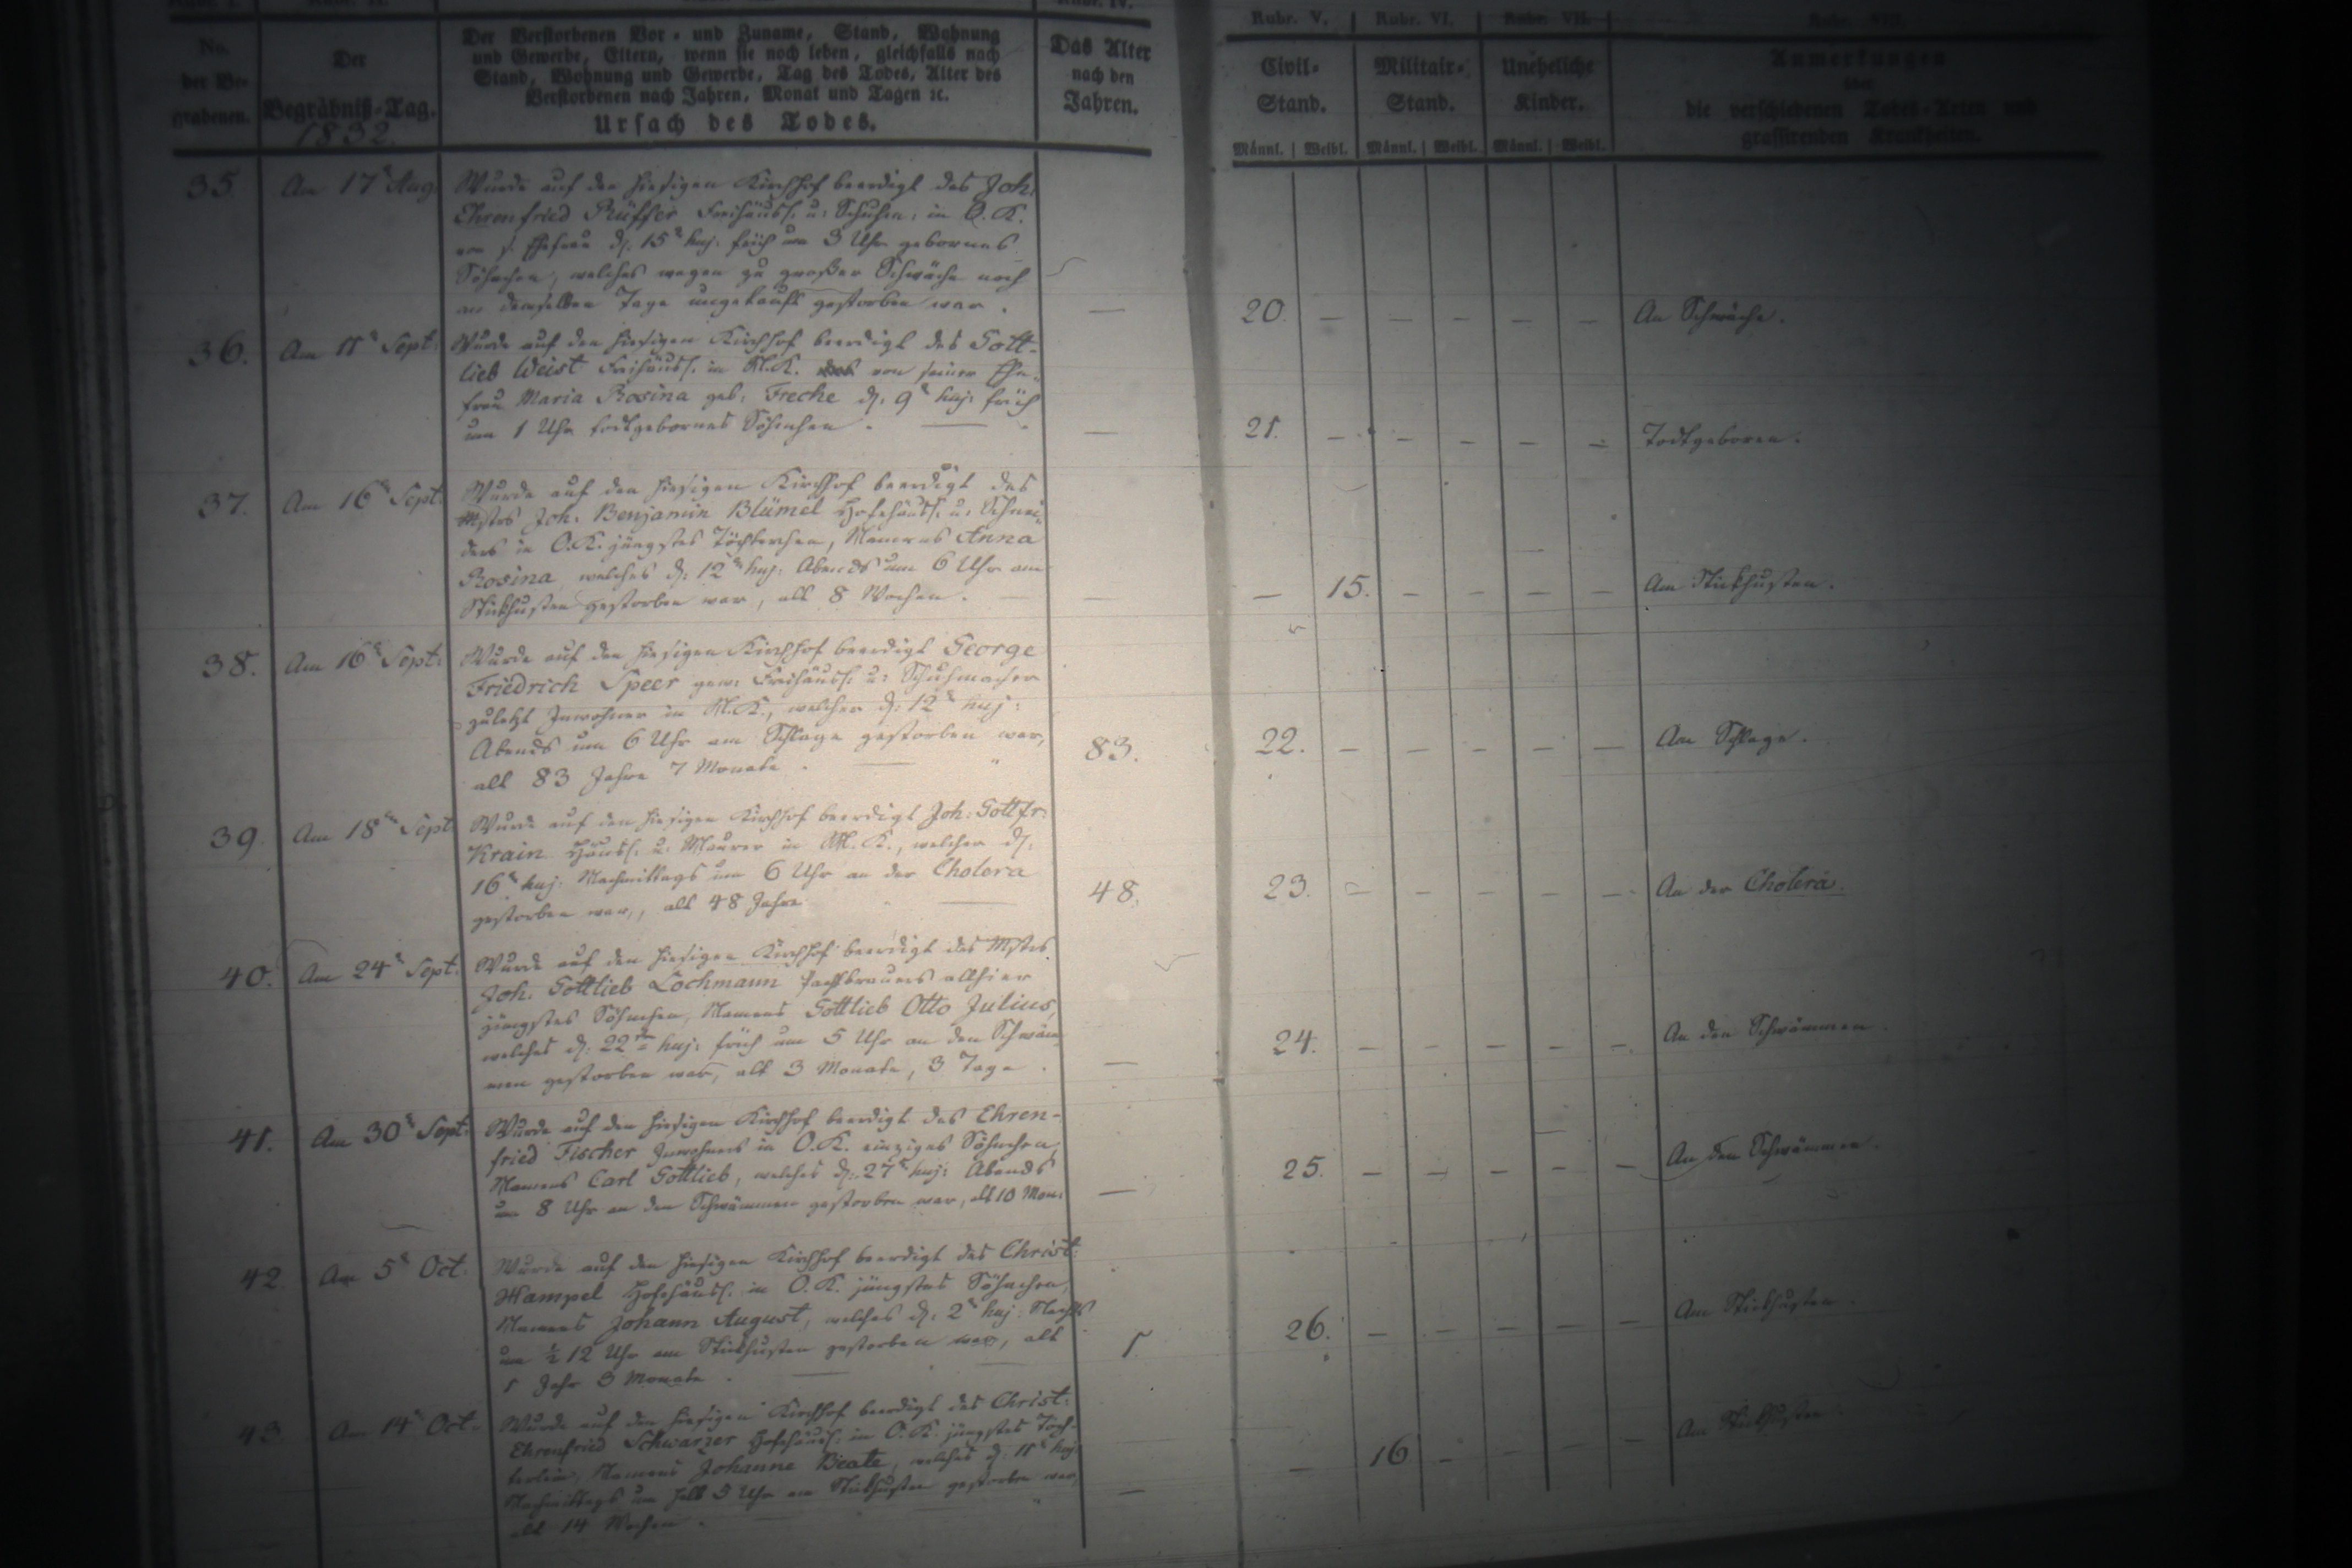 Rubr. V. Rubr. VI. Rubr. VII. Rubr. VIII.
No. der Be-grabenen.
Der Begräbniß-Tag. 1832.
Der Verstorbenen Vor- und Zuname, Stand, Wohnung
und Gewerbe, Eltern, wenn sie noch leben, gleichfalls nach
Stand, Wohnung und Gewerbe, Tag des Todes, Alter des
Verstorbenen nach Jahren, Monat und Tagen ꝛc.
Ursach des Todes.
Das Alter nach den Jahren.
Civil-Stand. Militair-Stand. Uneheliche Kinder.
Männl. Weibl. Männl. Weibl. Männl. Weibl.
Anmerkungen
über
die verschiedenen Todes-Arten und
grassirenden Krankheiten.
35. Am 17t Aug. Wurde auf den hiesigen Kirchhof beerdigt des Joh:
Ehrenfried Rüffer Freihäusl. u: Schuhm: in O.K.
von s. Ehefrau d. 15t huj: früh um 3 Uhr gebornes
Söhnchen, welches wegen zu großer Schwäche noch
an demselben Tage ungetauft gestorben war.
— 20. — — — — — An Schwäche.
36. Am 11t Sept: Wurde auf den hiesigen Kirchhof beerdigt des Gott-
lieb Weist Freihäusl. in N.K. von seiner Ehe-
frau Maria Rosina geb: Freche d. 9t huj: früh
um 1 Uhr todtgebornes Söhnchen. —
— 21. — — — — — Todtgeboren.
37. Am 16t Sept: Wurde auf den hiesigen Kirchhof beerdigt des
Mstrs Joh: Benjamin Blümel Hofehäusl. u: Schnei-
ders in O.K. jüngstes Töchterchen, Namens Anna
Rosina, welches d: 12t huj: Abends um 6 Uhr am
Stickhusten gestorben war, alt 8 Wochen.
— — 15. — — — — Am Stickhusten.
38. Am 16t Sept: Wurde auf den hiesigen Kirchhof beerdigt George
Friedrich Speer gew: Freihäusl. u: Schuhmacher
zuletzt Inwohner in N.K., welcher d: 12t huj:
Abends um 6 Uhr am Schlage gestorben war,
alt 83 Jahre 7 Monate. —
83. 22. — — — — — Am Schlage.
39. Am 18t Sept Wurde auf den hiesigen Kirchhof beerdigt Joh: Gottfr:
Krain Häusl. u: Maurer in N.K., welcher d:
16t huj: Nachmittags um 6 Uhr an der Cholera
gestorben war, alt 48 Jahre —
48. 23. — — — — — An der Cholera.
40. Am 24t Sept. Wurde auf den hiesigen Kirchhof beerdigt des Mstrs
Joh. Gottlieb Lochmann Pachtbrauers allhier
jüngstes Söhnchen, Namens Gottlieb Otto Julius,
welches d: 22t huj: früh um 5 Uhr an den Schwäm-
men gestorben war, alt 3 Monate, 3 Tage.
— 24. — — — — — An den Schwämmen.
41. Am 30t Sept: Wurde auf den hiesigen Kirchhof beerdigt des Ehren-
fried Fischer Inwohners in O.K. einziges Söhnchen,
Namens Carl Gottlieb, welches d: 27t huj: Abends
um 8 Uhr an den Schwämmen gestorben war, alt 10 Mon:
— 25. — — — — — An den Schwämmen.
42. Am 5t Oct: Wurde auf den hiesigen Kirchhof beerdigt des Christ:
Hampel Hofehäusl. in O.K. jüngstes Söhnchen,
Namens Johann August, welches d: 2t huj: Nachts
um ½ 12 Uhr am Stickhusten gestorben war, alt
1 Jahr 3 Monate. —
1. 26. — — — — — Am Stickhusten.
43. Am 14t Oct: Wurde auf den hiesigen Kirchhof beerdigt des Christ:
Ehrenfried Schwarzer Hofehäusl. in O.K. jüngstes Töch-
terlein, Namens Johanne Beate, welches d: 11t huj:
Nachmittags um halb 5 Uhr am Stickhusten gestorben war,
alt 14 Wochen. —
— — 16 — — — — Am Stickhusten.